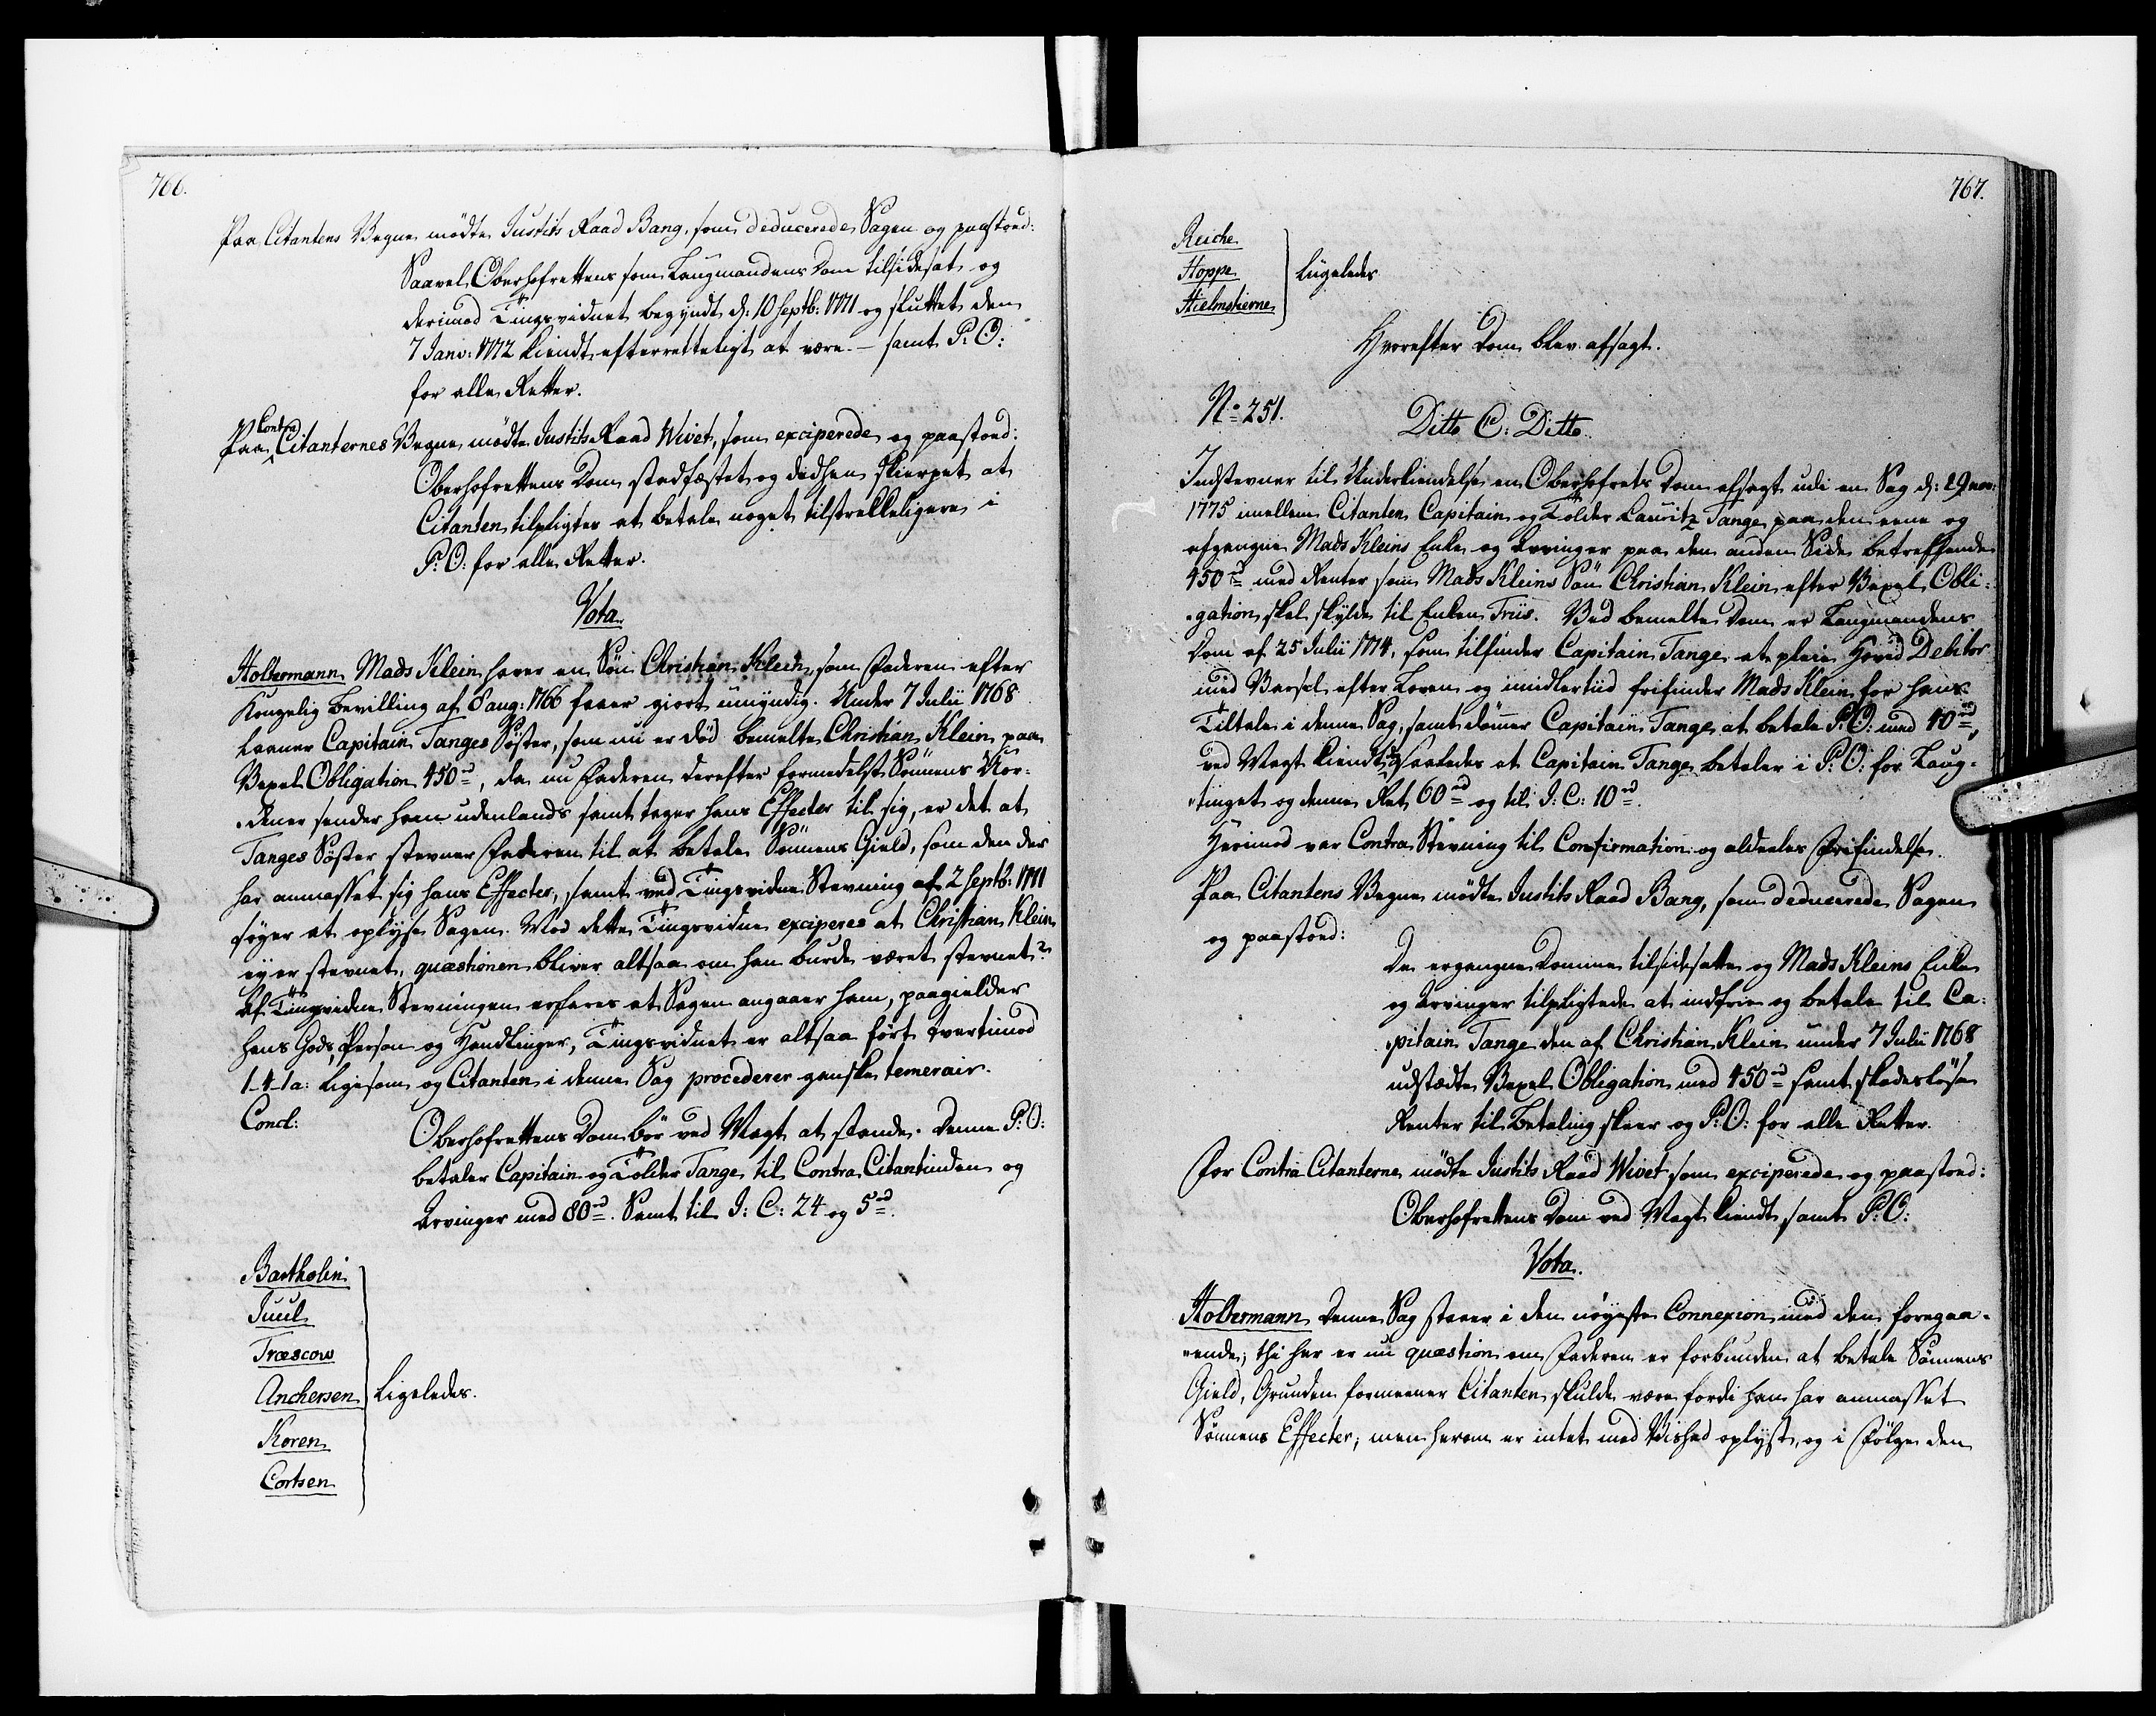 766.
Paa Citantens Vegne mødte Justits Raad Bang, som deducerede Sagen og paastoed:
Saavel Oberhofrettens som Laugmandens Dom tilsidesat og
derimod Tingsvidnet begyndt d: 10 Septb: 1771 og sluttet den
7 Janv: 1772 kiendt efterretteligt at være. – samt P: O:
for alle Retter.
Paa Contra Citanternes Vegne mødte Justits Raad Wivet, som exciperede og paastoed:
Oberhofrettens Dom stadfæstet og dedsen skierpet at
Citanten tilpligtes at betale noget tilstrelleligere i
P: O: for alle Retter.
Vota.
Holtermann Mads Klein haver en Søn Christian Klein, som Faderen efter
Kongelig Bevilling af 8 aug: 1766 faaer giort umyndig. Under 7 Julii 1768
laaner Capitain Tanges Søster, som nu er død bemelte Christian Klein paa
Vexel Obligation 450 rd, da nu Faderen derefter formedelst Sønnens Uor-
dener sender ham udenlands samt tager hans Effecter til sig, er det at
Tanges Søster stevner Faderen til at betale Sønnens Gield, som den der
har anmasset sig hans Effecter, samt ved Tingsvidne Stevning af 2 Septb: 1771
søger at oplyse Sagen. Mod dette Tingsvidne exciperes at Christian Klein
ey er stevnet, quæstionen bliver altsaa om han burde været stevnet?
Af Tingsvidne Stevningen erfares at Sagen angaaer ham, paagielder
hans Gods, Person og Handlinger, Tingsvidnet er altsaa ført tvertimod
1-4-1 a: ligesom og Citanten i denne Sag procederer ganske temerair.
Concl:
Oberhofrettens Dom bør ved Magt at stande. Denne P: O:
betaler Capitain og Tolder Tange til Contra Citantinden og
Arvinger med 80 rd. Samt til J: C: 24 og 5 rd.
Bartholin
Juul
Træscow
Anchersen Ligeledes.
Koren
Cortsen
767.
Reiche
Hoppe Ligeledes
Hielmstierne
Hvorefter Dom blev afsagt.
No 251.
Ditto C: Ditto.
Indstevner til Underkiendelse en Oberhofrets Dom afsagt udi en Sag d: 29 nov:
1775 imellem Citanten Capitain og Tolder Lauritz Tange paa den eene og
afgangne Mads Kleins Enke og Arvinger paa den anden Side betreffende
450 rd med Renter som Mads Kleins Søn Christian Klein efter Vexel Obli-
gation skal skylde til Enken Friis. Ved bemelte Dom er Laugmandens
Dom af 25 Julii 1774, som tilfinder Capitain Tange at pleie Hoved Debitor
med Varsel efter Loven og imidlertiid frifinder Mads Klein for hans
Tiltale i denne Sag, samt dømer Capitain Tange at betale P: O: med 40 rd,
ved Magt kiendt og saaledes at Capitain Tange betaler i P: O: for Laug-
tinget og denne Ret 60 rd og til J: C: 10 rd.
Herimod var Contra Stevning til Confirmation og aldeeles Frifindelse.
Paa Citantens Vegne mødte Justits Raad Bang, som deducerede Sagen
og paastoed:
De ergangne Domme tilsidesatte og Mads Kleins Enke
og Arvinger tilpligtede at indfrie og betale til Ca-
pitain Tange den af Christian Klein under 7 Julii 1768
udstædte Vexel Obligation med 450 rd samt skadesløse
Renter til Betaling skeer og P: O: for alle Retter.
For Contra Citanterne mødte Justits Raad Wivet som exciperede og paastoed:
Oberhofrettens Dom ved Magt kiendt samt P: O:
Vota.
Holtermann Denne Sag staaer i den nøyeste Connexion med den foregaa-
ende; thi her er nu quæstion om Faderen er forbunden at betale Sønnens
Gield, Grunden formeener Citanten skulde være fordi han har anmasset
Sønnens Effecter; men herom er intet med Vished oplyst, og i Følge den